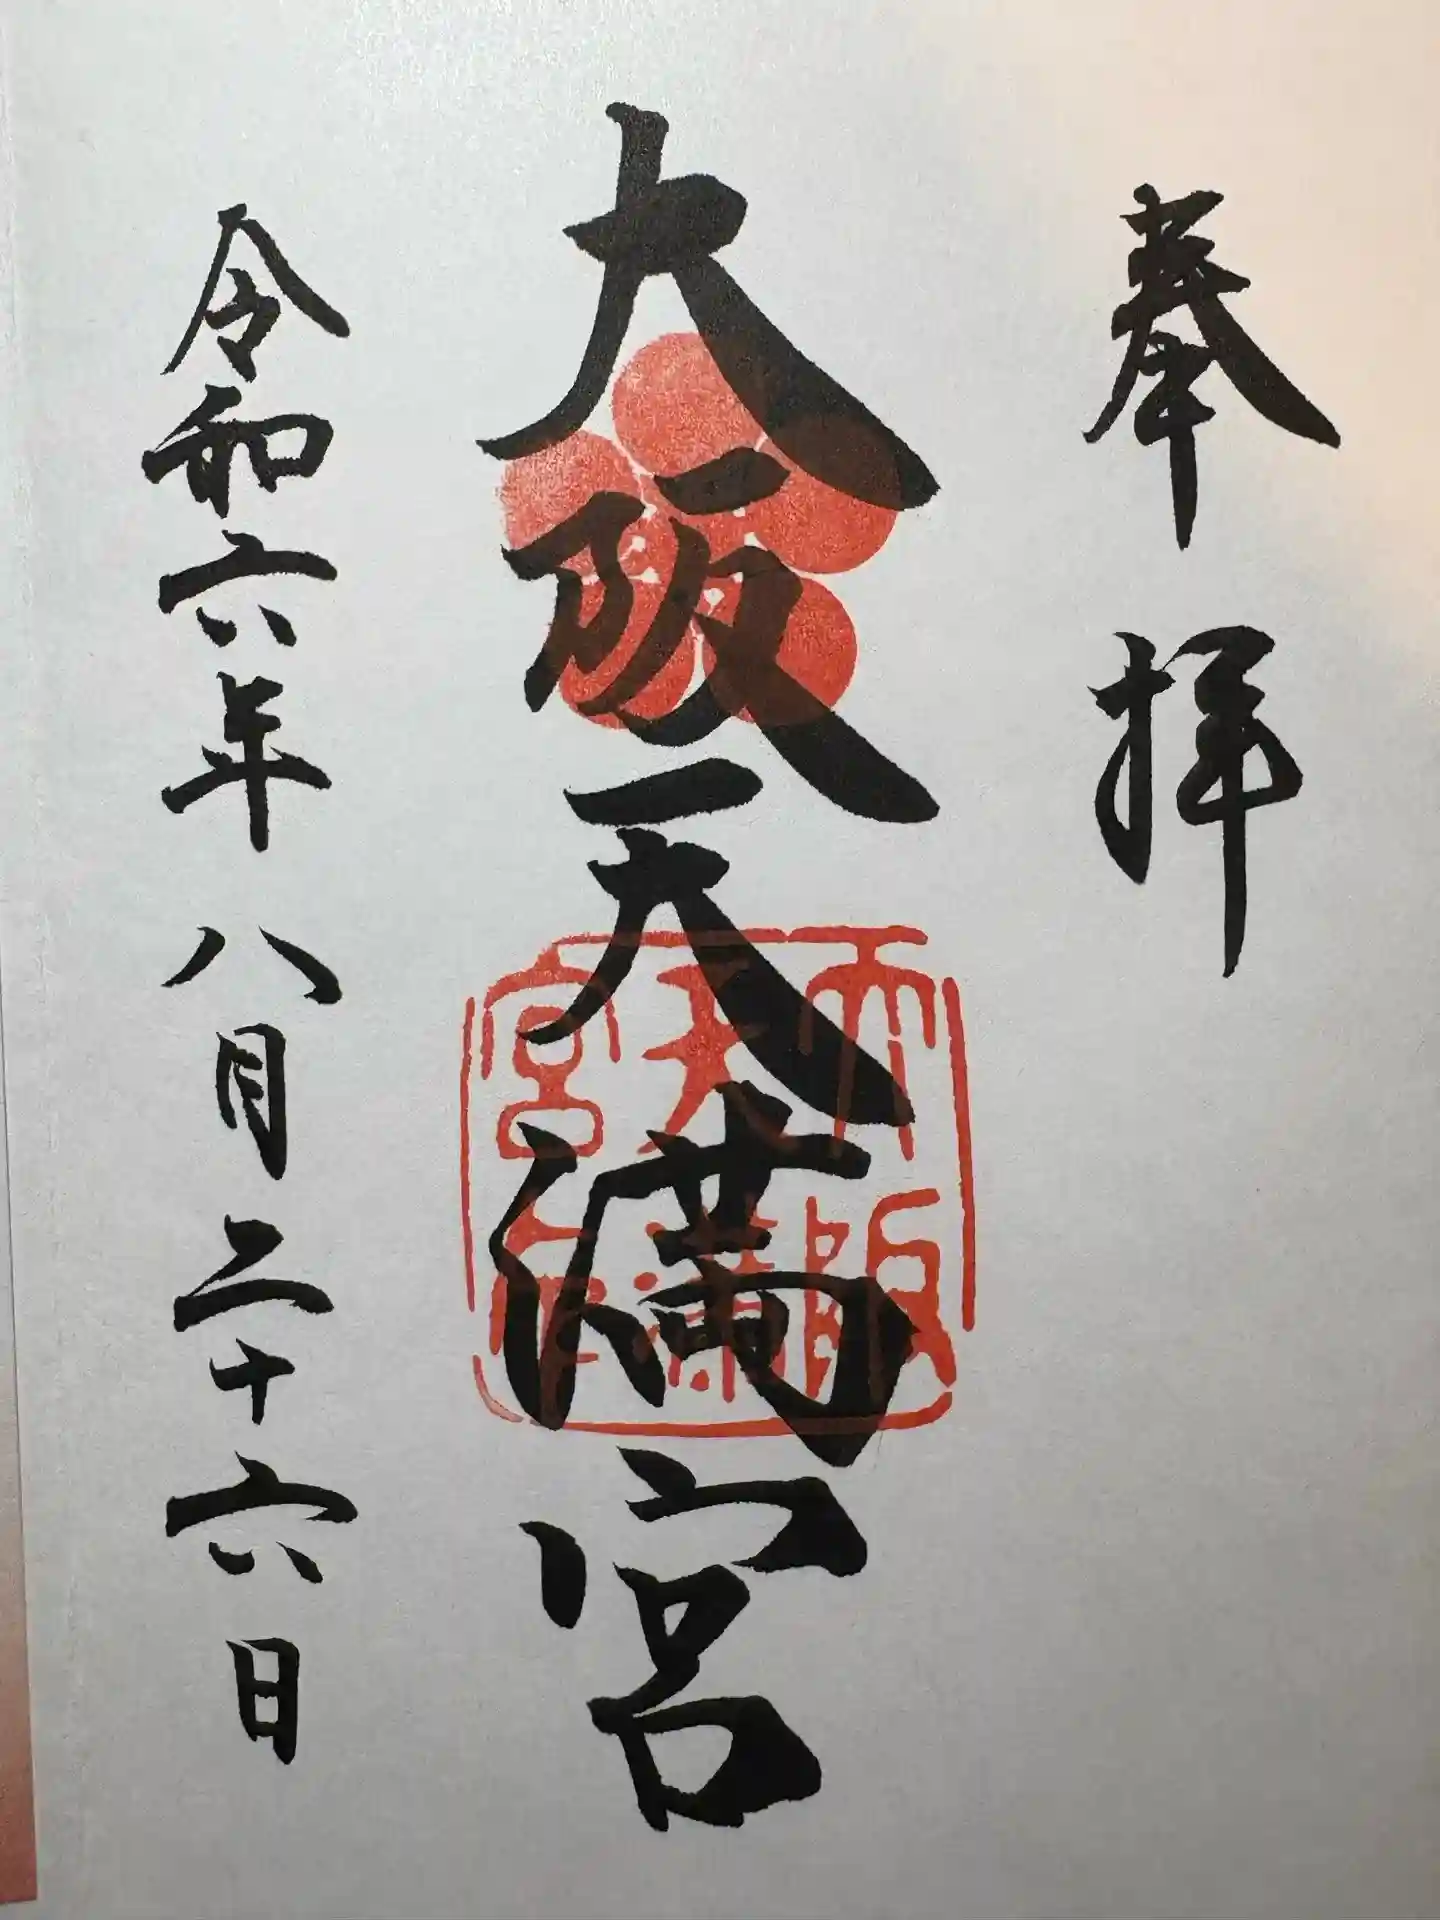 奉拝
大阪天満宮
大阪
天満
宮
令和六年八月二十六日